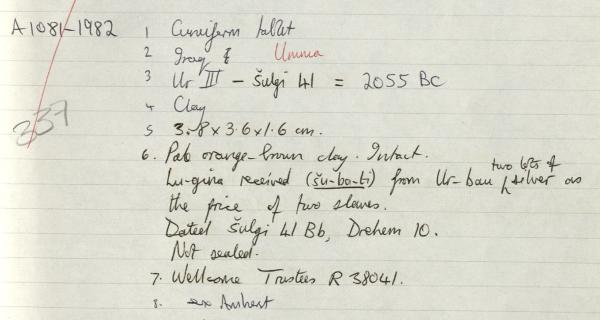 A1081-1982 1 Cuneiform tablet
2 Iraq ? Umma
3 Ur III – Šulgi 41 = 2055 BC
337
4 Clay
5 3.8 x 3.6 x 1.6 cm.
6. Pale orange-brown clay. Intact.
Lu-gina received (šu-ba-ti) from Ur-bau two lots of silver as
the price of two slaves.
Dated Šulgi 41 Bb, Drehem 10.
Not sealed.
7. Wellcome Trustees R 38041.
8. ex Amherst